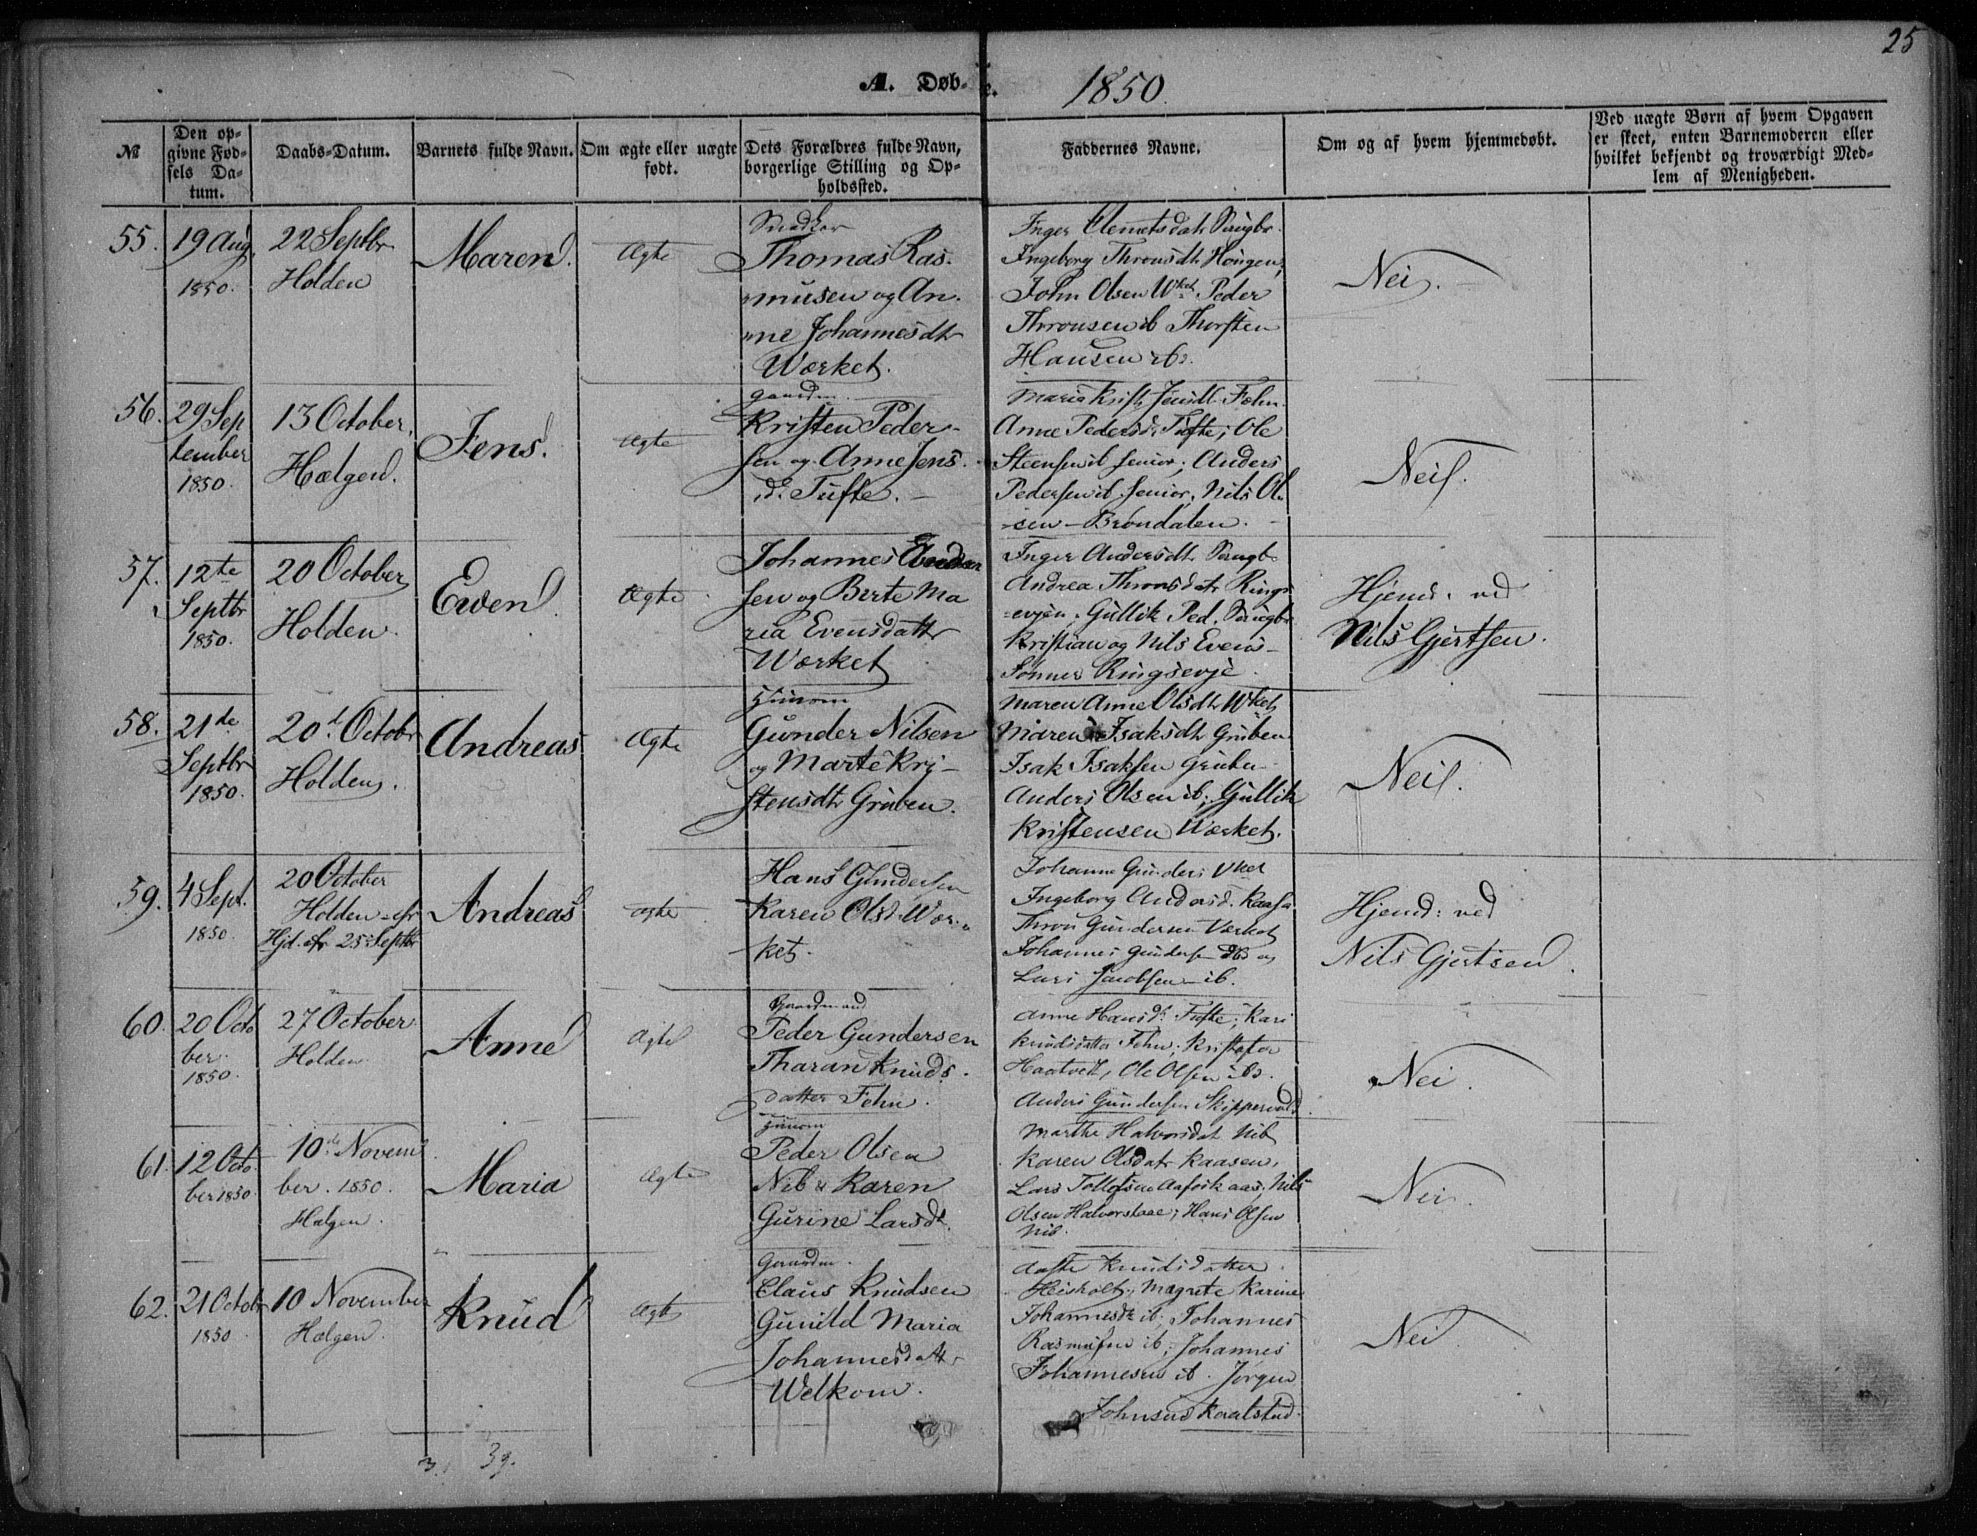 25
A. Døb-te. 1850.
№
Den op-
givne Fød-
sels Da-
tum.
Daabs-Datum.
Barnets fulde Navn.
Om ægte eller uægte
født.
Dets Forældres fulde Navn,
borgerlige Stilling og Op-
holdssted.
Faddernes Navne.
Om og af hvem hjemmedøbt.
Ved uægte Børn af hvem Opgaven
er skeet, enten Barnemoderen eller
hvilket bekjendt og troværdigt Med-
lem af Menigheden.
55.
19 Aug.
1850.
22 Septbr
Holden
Maren.
Ægte
Thomas Ras-
musen og An-
ne Johannesdtr
Wærket.
Inger Clemetsdatr
Ingeborg Thronsdtr Haugen,
John Olsen Wket Peder
Thronsen ib Thorsten
Hansen ibd.
Nei.
56.
29 Sep
tember
1850.
13 October.
Hælgen.
Jens.
Ægte
Gaardm.
Kristen Peder-
sen og Anne Jens
d. Tufte.
Maria Krist. Jensdtr Fehn.
Anne Pedersd. Tufte; Ole
Steensen ib senior; Anders
Pedersen ib. senior. Nils Ol
sen - Brøndalen.
Nei.
57.
12te
Septbr
1850.
20 October
Holden.
Ewen
Ægte
Johannes
sen og Berte Ma
ria Evensdatter
Wærket
Inger Andersdtr
Andrea Thronsdatr Rings
evjen; Gullik Ped.
Kristian og Nils Evens-
Sønner Ringsevje.
Hjemd: ved
Nils Gjertsen.
58.
21de
Septbr
1850.
20d. Octobr
Holden.
Andreas
Ægte
Huusm
Gunder Nilsen
og Marte Kri-
stensdtr Gruben.
Maren Anne Olsdtr Wket
Maren Isaksdtr Gruben
Isak Isaksen Gruben
Anders Olsen ib; Gullik
Kristensen Wærket.
Nei.
59.
4 Sept.
1850.
20 October
Holden - efr
Hjd. efr 25 Septbr
Andreas
Ægte
Hans Gundersen
Karen Olsd. Wær-
ket.
Johanne Gunders Vket
Ingeborg Andersd. Kaasa
Thron Gundersen Værket
Johannes Gundersen ibd og
Lars Jacobsen ib.
Hjemd: ved
Nils Gjertsen.
60.
20 Octo
ber.
1850.
27 October
Holden.
Anne
Ægte
Gaardmand
Peder Gundersen
Tharan Knuds-
datter Fehn.
Anne Hansd. Tufte; Kari
Knudsdatter Fehn; Kristofer
Haatveit, Ole Olsen ibd.
Anders Gundersen Skippervold.
Nei.
61.
12 Octo
ber 1850.
10de Novem
ber. 1850.
Hælgen.
Maria
Ægte
Huusm
Peder Olsen
Nib & Karen
Gurine Larsdt.
Marthe Halvorsdat Nib
Karen Olsdatr Kaasen,
Lars Tollofsen Aafosk aas, Nils
Olsen Halvorskaae; Hans Olsen
Nib.
Nei.
62.
21 Octobr
1850.
10 November
Hælgen.
Knud
Ægte
Gaardm.
Claus Knudsen
Gunild Maria
Johannesdattr
Welkom.
Aaste Knudsdatter
Heisholt; Magrete Karine
Johannesdtr ib; Johannes
Rasmusen ib; Johannes
Johannesen ib. Jørgen
Johnsen Kaalstad.
Nei.
39.